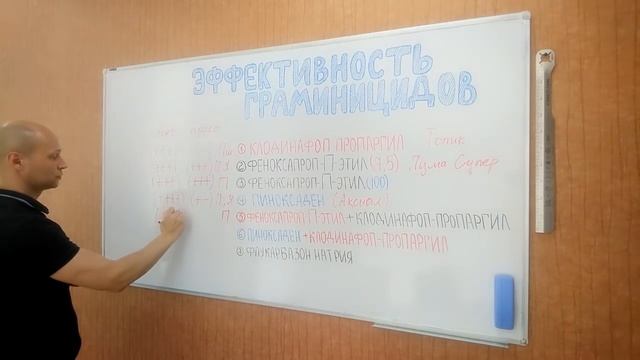 ЭФФЕКТИВНОСТЬ
ГРАМИНИЦИДОВ
просо
(+++) 1 КЛОДИНАФОП ПРОПАРГИЛ Топик
(+++) (++) П,Я 2 ФЕНОКСАПРОП-П-ЭТИЛ (7,5) Пума Супер
(+++) (+++) П 3 ФЕНОКСАПРОП-П-ЭТИЛ (100)
(+++) (+-) П,Я 4 ПИНОКСАДЕН (Аксиал)
П 5 ФЕНОКСАПРОП П-ЭТИЛ + КЛОДИНАФОП-ПРОПАРГИЛ
6 ПИНОКСАДЕН + КЛОДИНАФОП-ПРОПАРГИЛ
7 ФЛУКАРБАЗОН НАТРИЯ